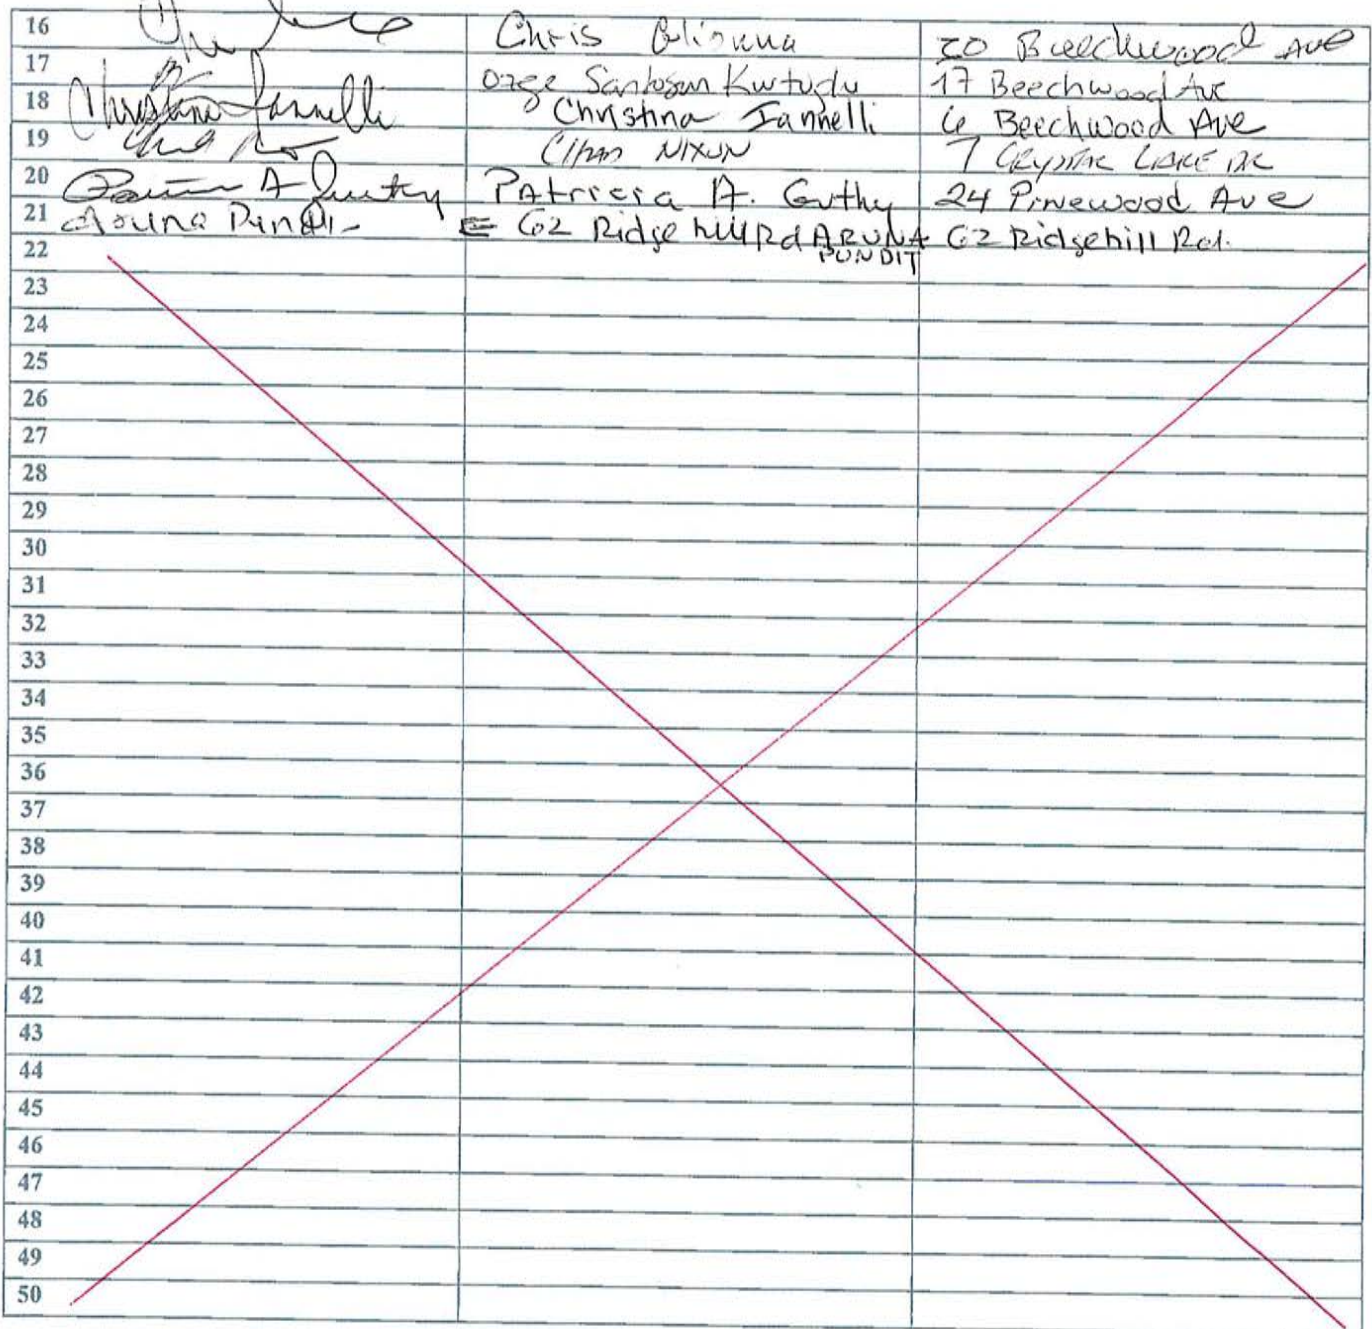 16 Chris 20 Beechwood Ave
17 Ozge Kurtuglu 17 Beechwood Ave
18 Christina Iannelli Christina Iannelli 6 Beechwood Ave
19 NIXON 7 CRYSTAL LAKE DR
20 Patricia A. Guthy 24 Pinewood Ave
21 Aruna Pundit 62 Ridge hill Rd ARUNA PUNDIT 62 Ridgehill Rd.
22
23
24
25
26
27
28
29
30
31
32
33
34
35
36
37
38
39
40
41
42
43
44
45
46
47
48
49
50